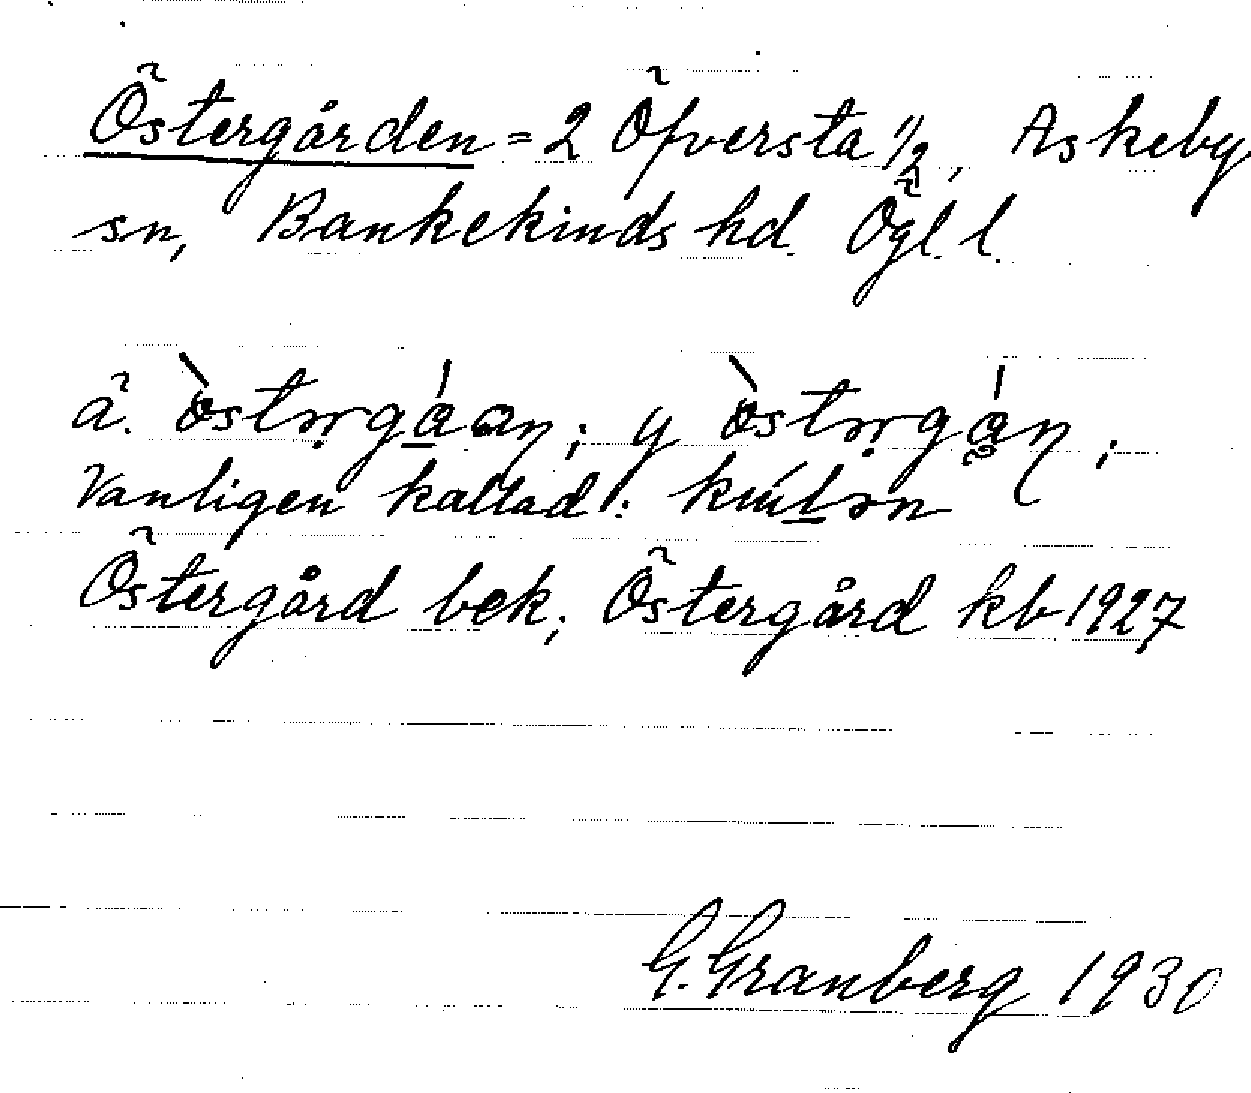 Östergården = 2 Öfversta 1/2, Askeby
sn, Bankekinds hd. Ögl. l.
ä. y
Vanligen kallad:
Östergård bek; Östergård kb 1927
G. Granberg 1930